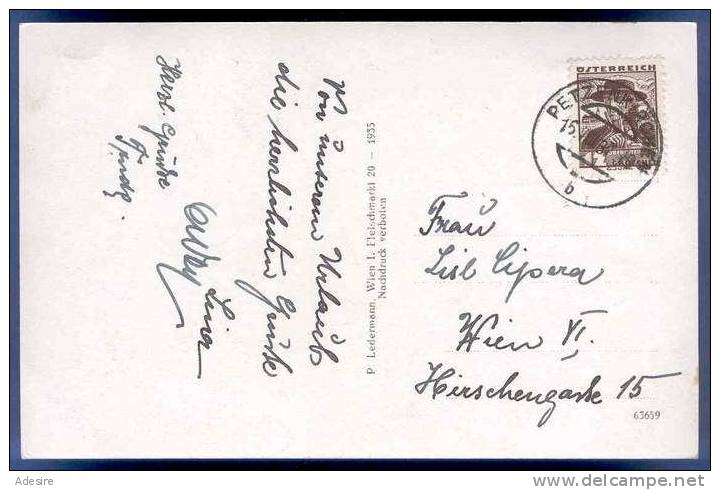 Von unserem Urlaub
die herzlichsten Grüsse
Herzl. Grüsse
P. Ledermann, Wien I. Fleischmarkt 20 – 1935
Nachdruck verboten
ÖSTERREICH
PETZ
Frau
Lisl Cipera
Wien VI.
Hirschengasse 15
63659
Adesire
delcampe.net